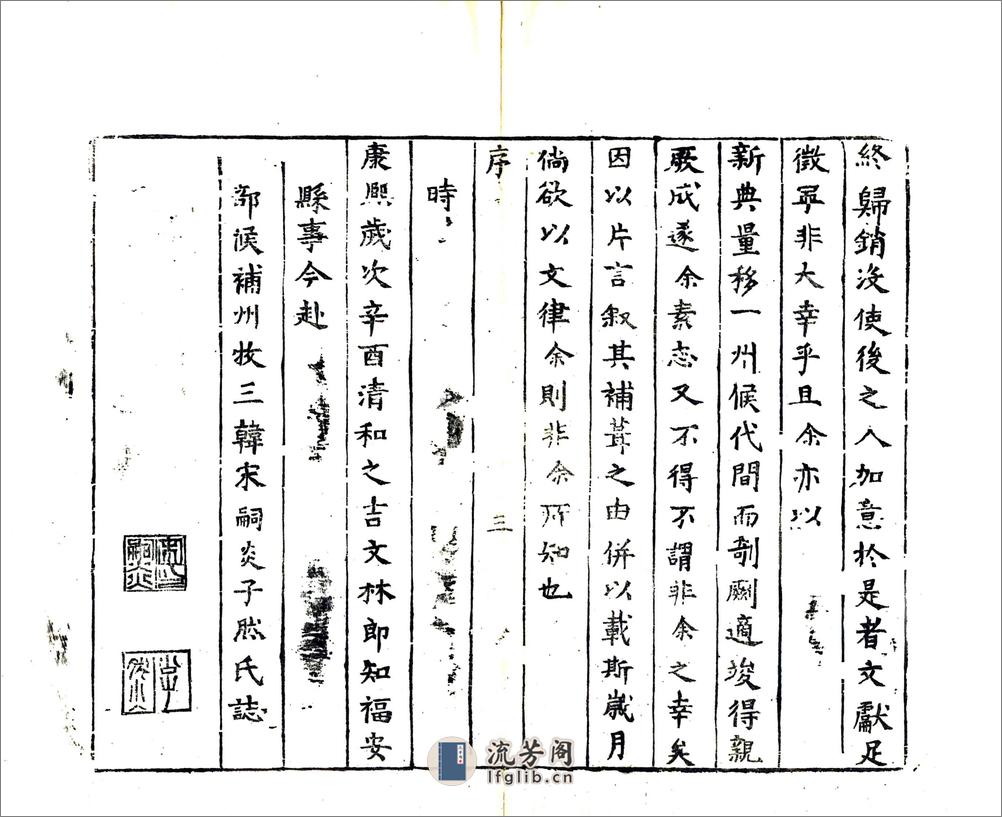 終歸銷沒使後之人加意於是者文獻足
徵寧非大幸乎且余亦以
新典量移一州候代間而剞劂適竣得親
厥成遂余素志又不得不謂非余之幸矣
因以片言叙其補葺之由併以載斯嵗月
倘欲以文律余則非余所知也
序 三
時
康熙歲次辛酉清和之吉文林郎知福安
縣事今赴
部候補州牧三韓宋嗣炎子燃氏誌
流芳阁
lfglib.cn